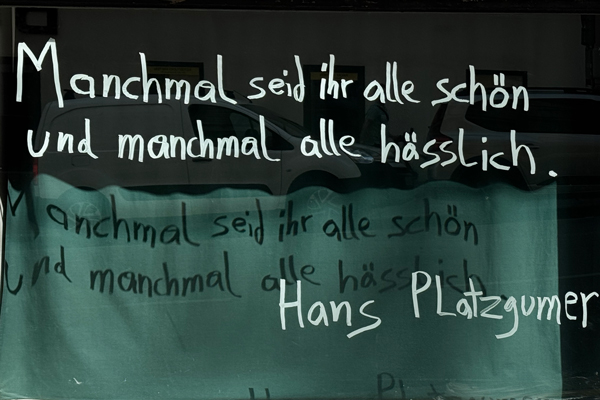 Manchmal seid ihr alle schön
und manchmal alle hässlich.
Manchmal seid ihr alle schön
und manchmal alle hässlich
Hans Platzgumer
Hans Platzgumer